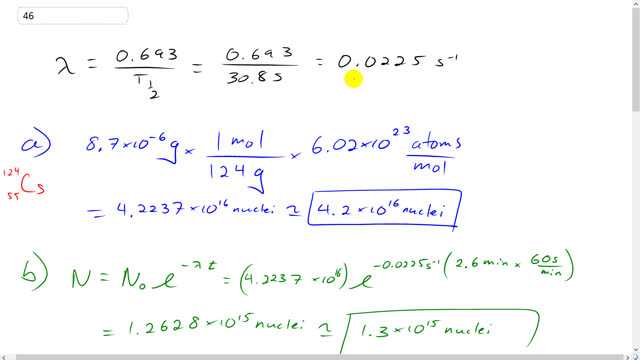 46
λ = 0.693 / T½ = 0.693 / 30.8s = 0.0225 s⁻¹
a) 8.7×10⁻⁶g × 1 mol / 124 g × 6.02×10²³ atoms / mol
¹²⁴₅₅Cs
= 4.2237×10¹⁶ nuclei ≃ 4.2×10¹⁶ nuclei
b) N = N₀ e^(-λt) = (4.2237×10¹⁶) e^(-0.0225s⁻¹ (2.6 min × 60s / min))
= 1.2628×10¹⁵ nuclei ≃ 1.3×10¹⁵ nuclei